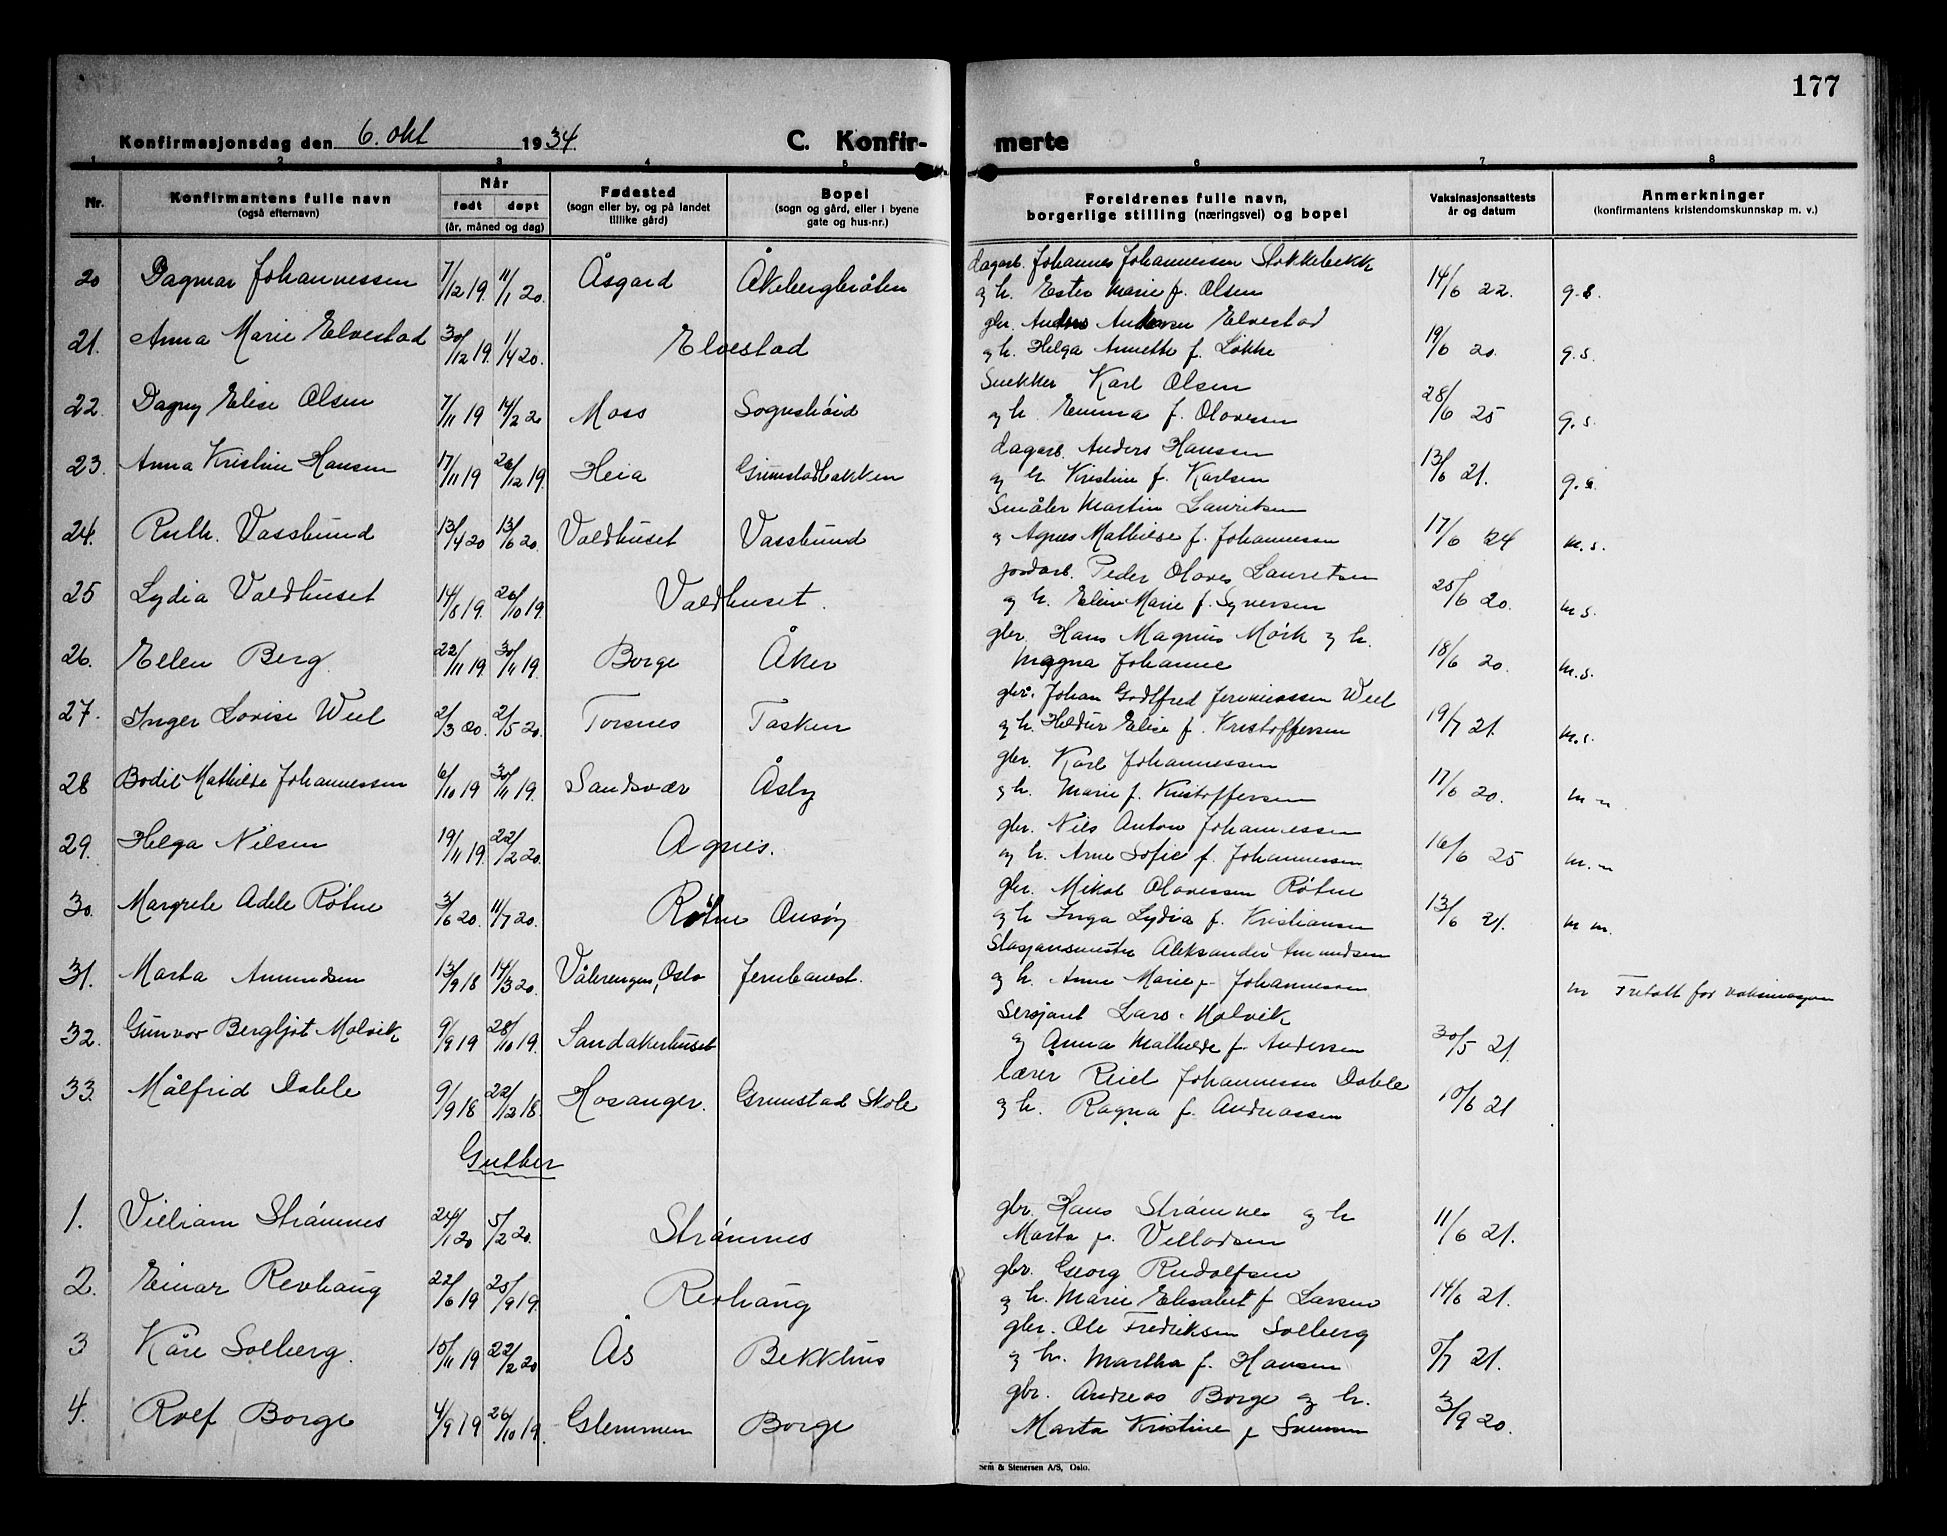 177
Konfirmasjonsdag den 6. okt 1934. C. Konfir- merte
1 2 3 4 5 6 7 8
Nr. Konfirmantens fulle navn (også efternavn) Når født døpt (år, måned og dag) Fødested (sogn eller by, og på landet tillike gård) Bopel (sogn og gård, eller i byene gate og hus-nr.) Foreldrenes fulle navn, borgerlige stilling (næringsvei) og bopel Vaksinasjonsattests år og datum Anmerkninger (konfirmantens kristendomskunnskap m. v.)
dagarb. Johannes Johannessen Stokkebekk
20 Dagmar Johannessen 7/12 19. 11/1 20. Åsgard Åkebergbråten og h. Ester Marie f. Olsen 14/6 22. g.s.
gbr. Anders Andersen Elvestad
21. Anna Marie Elvestad 30/12 19. 1/4 20. Elvestad og h. Helga Annette f. Løkke 19/6 20. g.s.
Snekker Karl Olsen
22. Dagny Elise Olsen 7/11 19 14/2 20 Moss Sogneshøid og h. Emma f. Olavesen 28/6 25 g.s.
dagarb. Anders Hansen
23. Anna Kristine Hansen 17/11 19 26/12 19. Heia Grimstadbakken og h. Kristine f. Karlsen 13/6 21. g.s.
Småbr Martin Lauritsen
24. Ruth. Vasslund 13/4 20 13/6 20. Valdhuset Vasslund og Agnes Mathilde f. Johannessen 17/6 24 m.s.
jordarb. Peder Olaves Lauretsen
25 Lydia Valdhuset 14/8 19. 26/10 19. Valdhuset. og h. Elin Marie f. Syversen 25/6 20. m.s.
gbr. Hans Magnus Mørk og h.
26. Ellen Berg. 22/11 19. 30/11 19. Borge Åker Magna Johanne 18/6 20. m.s.
gbr. Johan Godtfred Jeremiassen Weel
27. Inger Lovise Weel 2/3 20. 2/5 20. Torsnes Tasken og h. Heldur Elise f. Kristoffersen 19/7 21. m.s.
gbr. Karl Johannessen
28 Bodil Mathilde Johannessen 6/10 19 30/11 19. Sandsvær Åsby og h. Marie f. Kristoffersen 17/6 20. m
gbr. Nils Anton Johannessen
29. Helga Nilsen 19/11 19. 22/2 20. Agnes. og h. Arne Sofie f. Johannessen 16/6 25 m.
gbr. Mikal Olavessen Røtne
30. Margrete Adele Røtne 3/6 20. 11/7 20. Røtne Onsøy og h Inga Lydia f. Kristiansen 13/6 21. m m.
Stasjonsmester Aleksander Amundsen
31. Marta Amundsen 13/9 18 14/3 20. Vålerengen, Oslo Jernbanest. og h. Anna Marie f. Johannessen m Fritatt for vaksinasjon
Sersjant Lars Molvik
32. Gunvor Bergljot Molvik 9/9 19 28/10 19. Sandakerhuset og Anna Mathilde f. Andersen 30/5 21.
lærer Reiel Johannessen Dahle
33. Målfrid Dahle 9/9 18 22/12 18. Hosanger. Grimstad Skole og h. Ragna f. Andreassen 10/6 21
Gutter
1. Villiam Strømnes 24/1 20 5/2 20. Strømnes gbr. Hans Strømnes og h
Marta f. Villadsen 11/6 21.
gbr. Georg Rudolfsen
2. Einar Revhaug 22/6 19 25/9 19. Revhaug og h. Marie Elisabet f Larsen 14/6 21.
gbr. Ole Fredriksen Solberg
3 Kåre Solberg. 15/11 19 22/2 20 Ås Bekkhus og h. Martha f. Hansen 5/7 21.
gbr. Andreas Borge og h.
4. Rolf Borge 4/9 19 26/10 19. Glemmen Borge Marta Kristine f 3/9 20.
Sem & Stenersen A/S, Oslo.